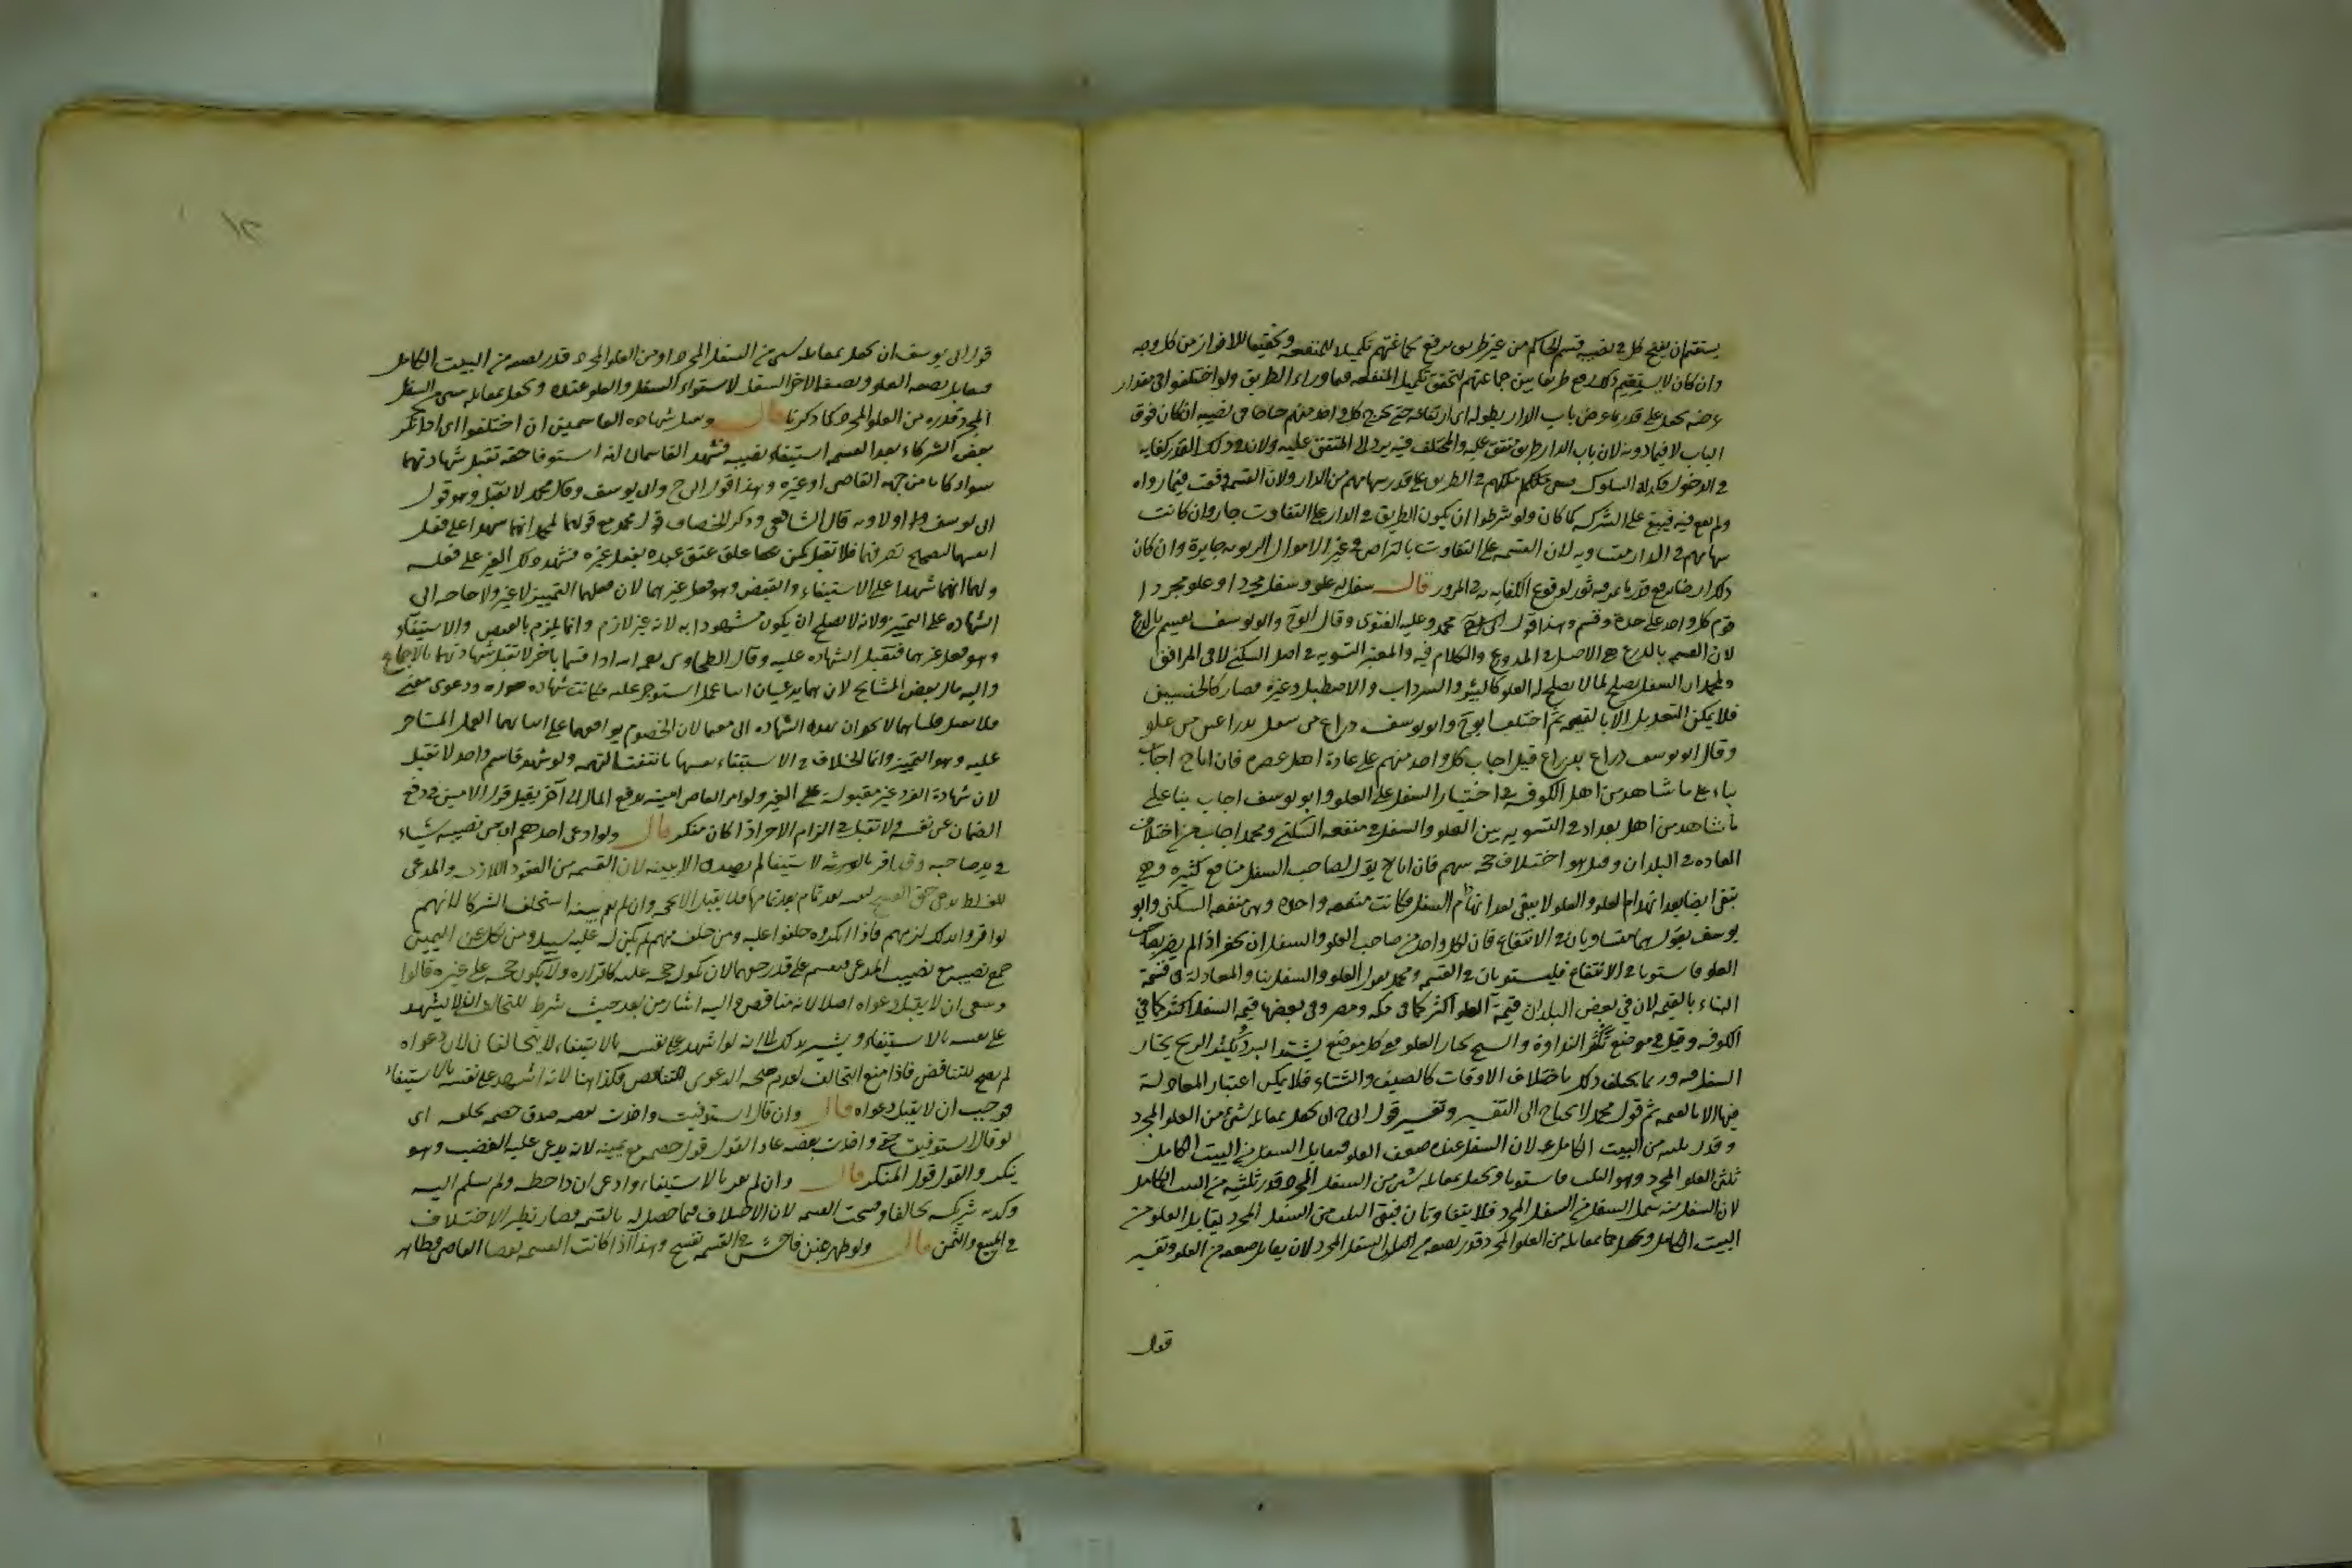 يستقم ان يفتح كل في نصيبه قسم الحاكم من غير طريق يرفع لجماعتهم تكميلا للمنفعه وتحقيقا للافراز من كل وجه
وان كان لا يستقيم ذلك رفع طريقا بين جماعتهم لتحقق تكميل المنفعه فيما وراء الطريق ولو اختلفوا في مقدار
عرضه يجعل على قدر عرض باب الدار بطوله اى ارتفاعه حتى يخرج كل واحد منهم جناحا فى نصيبه ان كان فوق
الباب لا فيما دونه لان باب الدار طريق متفق عليه والمختلف فيه يرد الى المتفق عليه ولان في ذلك القدر كفايه
في الدخول فكذا في السلوك ملكهم في الطريق على قدر سهامهم من الدار ولان القسمه وقعت فيما رواه
ولم يقع فيه فيبقى على الشركه كما كان ولو شرطوا ان يكون الطريق في الدار على التفاوت جاز وان كانت
سهامهم في الدار متساويه لان القسمه على التفاوت بالتراضي في غير الاموال الربويه جايزة وان كان
ذلك ارضا يرفع قدر ما يمر فيه ثور لوقوع الكفايه به في المرور قال سفل له علو وسفل مجرد وعلو مجرد
قوم كل واحد على حدة وقسم وهذا قول محمد وعليه الفتوى وقال ابو ح وابو يوسف يقسم بالذرع
لان القسمه بالذرع هى الاصل في المذروع والكلام فيه والمعتبر التسويه في اصل السكنى لا في المرافق
ولمحمد ان السفل يصلح لما لا يصلح له العلو كالبئر والسرداب والاصطبل وغيره فصار كالجنسين
فلا يمكن التعديل الا بالقيمه ثم اختلف ابو ح وابو يوسف ذراع من سفل بذراعين من علو
وقال ابو يوسف ذراع بذراع قيل اجاب كل واحد منهم على عادة اهل عصره فان ابا ح اجاب
بناء على ما شاهد من اهل الكوفه في اختيار السفل على العلو وابو يوسف اجاب بنا على
ما شاهد من اهل بغداد في التسويه بين العلو والسفل في منفعه السكنى ومحمد اجاب من اختلاف
العاده في البلدان وقيل هو اختلاف حجه بينهم فان ابا ح يقول لصاحب السفل منافع كثيره وهي
تبقى ايضا بعد انهدام العلو والعلو لا يبقى بعد انهدام السفل فكانت منفعه واحده وهى منفعه السكنى وابو
يوسف يقول هما متساويان في الانتفاع فان لكل واحد من صاحب العلو والسفل ان يحفر اذا لم يضر بصاحب
العلو فاستويا في الانتفاع فيستويان في القسمه ومحمد يقول العلو والسفل بنا والمعادله فى قسمة
البناء بالقيمه لان في بعض البلدان قيمة العلو اكثر كما فى مكه ومصر وفى بعضها قيمه السفل اكثر كما في
الكوفه وقيل في موضع تكثر النداوة والسبخ يختار العلو وفي كل موضع يشتد البرد ويكثر الريح يختار
السفل وربما يختلف ذلك باختلاف الاوقات كالصيف والشتاء فلا يمكن اعتبار المعادلة
فيها الا بالقيمه ثم قول محمد لا يحتاج الى التفسير وتفسير قول ابي ح ان يجعل بمقابله شئ من العلو المجرد
وقدر ثلثه من البيت الكامل لان السفل عنده ضعف العلو فيقابل السفل من البيت الكامل
ثلثى العلو المجرد وهو الثلث فاستويا ويجعل بمقابله شئ من السفل المجرد قدر ثلثيه من البيت الكامل
لان السفل منه مثل السفل من السفل المجرد فلا يتفاوتان فبقى الثلث من السفل المجرد يقابل العلو من
البيت الكامل ويجعل بمقابله من العلو المجرد قدر نصفه من السفل المجرد لان يقابل ضعفه من العلو وتفسير
قول
قول ابى يوسف ان يجعل بمقابله شى من السفل المجرد او من العلو المجرد قدر نصفه من البيت الكامل
فيقابل نصفه العلو ونصفه الاخر السفل لاستواء السفل والعلو عنده ويجعل بمقابله شى من السفل
المجرد قدره من العلو المجرد كما ذكرنا قال وتقبل شهاده القاسمين ان اختلفوا اى اذا انكر
بعض الشركاء بعد القسمه استيفاء نصيبه فشهد القاسمان انه استوفا حقه تقبل شهادتهما
سواء كانا من جهه القاضى او غيره وهذا قول ابى ح وابى يوسف وقال محمد لا تقبل وهو قول
ابى يوسف اولا وبه قال الشافعي وذكر الخصاف قول محمد مع قولهما لمحمد انهما شهدا على فعل
انفسهما لتصحيح تصرفهما فلا تقبل كمن علق عتق عبده بفعل غيره فشهد ذلك الغير على فعله
ولهما انهما شهدا على الاستيفاء والقبض وهو فعل غيرهما لان فعلهما التمييز لا غير ولا حاجه الى
الشهاده على التمييز ولانه لا يصلح ان يكون مشهودا به لانه غير لازم وانما يلزم بالقبض والاستيفاء
وهو فعل غيرهما فتقبل الشهاده عليه وقال الطحاوى رحمه الله اذا قسما باجر لا تقبل شهادتهما بالاجماع
واليه مال بعض المشايخ لانهما يدعيان ايفاء عمل استوجر عليه فكانت شهاده صوره ودعوى معنى
فلا تقبل قلنا هما لا يجران بهذه الشهاده الى مغنما لان الخصوم يوافقهما على ايفائهما العمل المستاجر
عليه وهو التمييز وانما الخلاف في الاستيفاء فانتفت التهمه ولو شهد قاسم واحد لا تقبل
لان شهادة الفرد غير مقبولة على الغير ولو امر القاضى امينه بدفع المال الى آخر يقبل قول الامين في دفع
الضمان عن نفسه ولا تقبل في الزام الاخر اذا كان منكر قال ولو ادعى احدهم ان من نصيبه شياء
في يد صاحبه وقد اقر بالاستيفا لم يصدق الا ببينه لان القسمه من العقود اللازمه والمدعى
للغلط يدعى حق الفسخ لنفسه بعد تمامها فلا يقبل الا بحجه وان لم يقم بينه استحلف الشركا لانهم
لو اقروا بذلك لزمهم فاذا انكروه حلفوا عليه ومن حلف منهم لم يكن له عليه سبيل ومن نكل عن اليمين
جمع نصيبه مع نصيب المدعى فيقسم على قدر حقهما لان نكوله حجه عليه كاقراره ولا يكون حجه على غيره قالوا
وينبغى ان لا يقبل دعواه اصلا لانه مناقض واليه اشار من بعد حيث شرط للتحالف ان لا يشهد
على نفسه بالاستيفاء ويشير بذلك الى انه لو اشهد على نفسه بالاستيفاء لا يتحالفان لان دعواه
لم يصح للتناقض فاذا منع التحالف لعدم صحه الدعوى للتناقض فكذا هنا لانه اشهد على نفسه بالاستيفاء
فوجب ان لا يقبل دعواه قال وان قال استوفيت واخذت بعضه صدق خصمه بحلفه اى
لو قال استوفيت حقى واخذت بعضه عاد القول قول خصمه مع يمينه لانه يدعى عليه الغصب وهو
ينكر والقول قول المنكر قال وان لم يقر بالاستيفاء وادعى ان ذا حظه ولم يسلم اليه
وكذبه شريكه تحالفا وفسخت القسمه لان الاختلاف فيما حصل له بالقسمه فصار نظير الاختلاف
في المبيع والثمن قال ولو ظهر غبن فاحش في القسمه تفسخ وهذا اذا كانت القسمه بقضا القاضى فظاهر